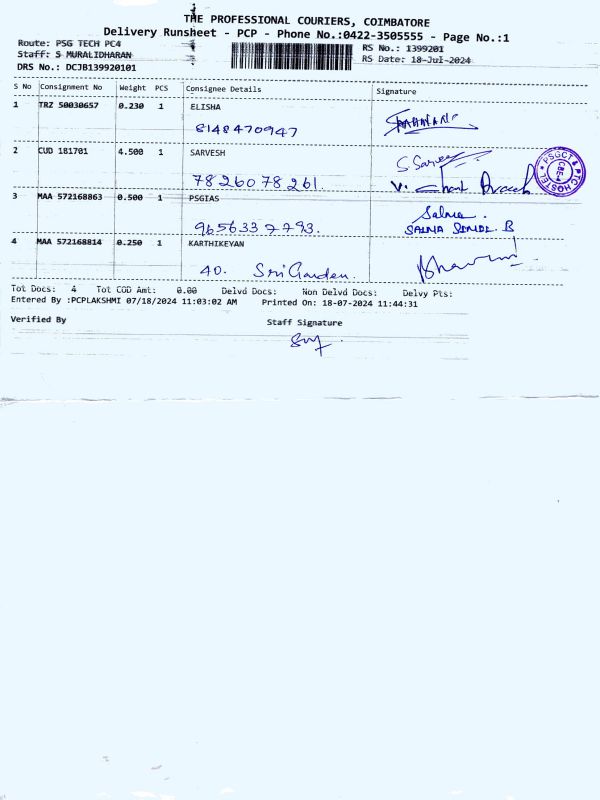 THE PROFESSIONAL COURIERS, COIMBATORE
Delivery Runsheet - PCP - Phone No.:0422-3505555 - Page No.:1
Route: PSG TECH PC4
Staff: S MURALIDHARAN
DRS No.: DCJB139920101
RS No.: 1399201
RS Date: 18-Jul-2024
S No Consignment No Weight PCS Consignee Details Signature
1 TRZ 50030657 0.230 1 ELISHA
8148470947
2 CUD 181701 4.500 1 SARVESH
S Sarvesh
7826078261.
PSGCT & PTC HOSTEL CBE-4
3 MAA 572168863 0.500 1 PSGIAS
Salma.
9656337793. SALMA B
4 MAA 572168814 0.250 1 KARTHIKEYAN
40. Sri Garden.
Tot Docs: 4 Tot COD Amt: 0.00 Delvd Docs: Non Delvd Docs: Delvy Pts:
Entered By :PCPLAKSHMI 07/18/2024 11:03:02 AM Printed On: 18-07-2024 11:44:31
Verified By Staff Signature